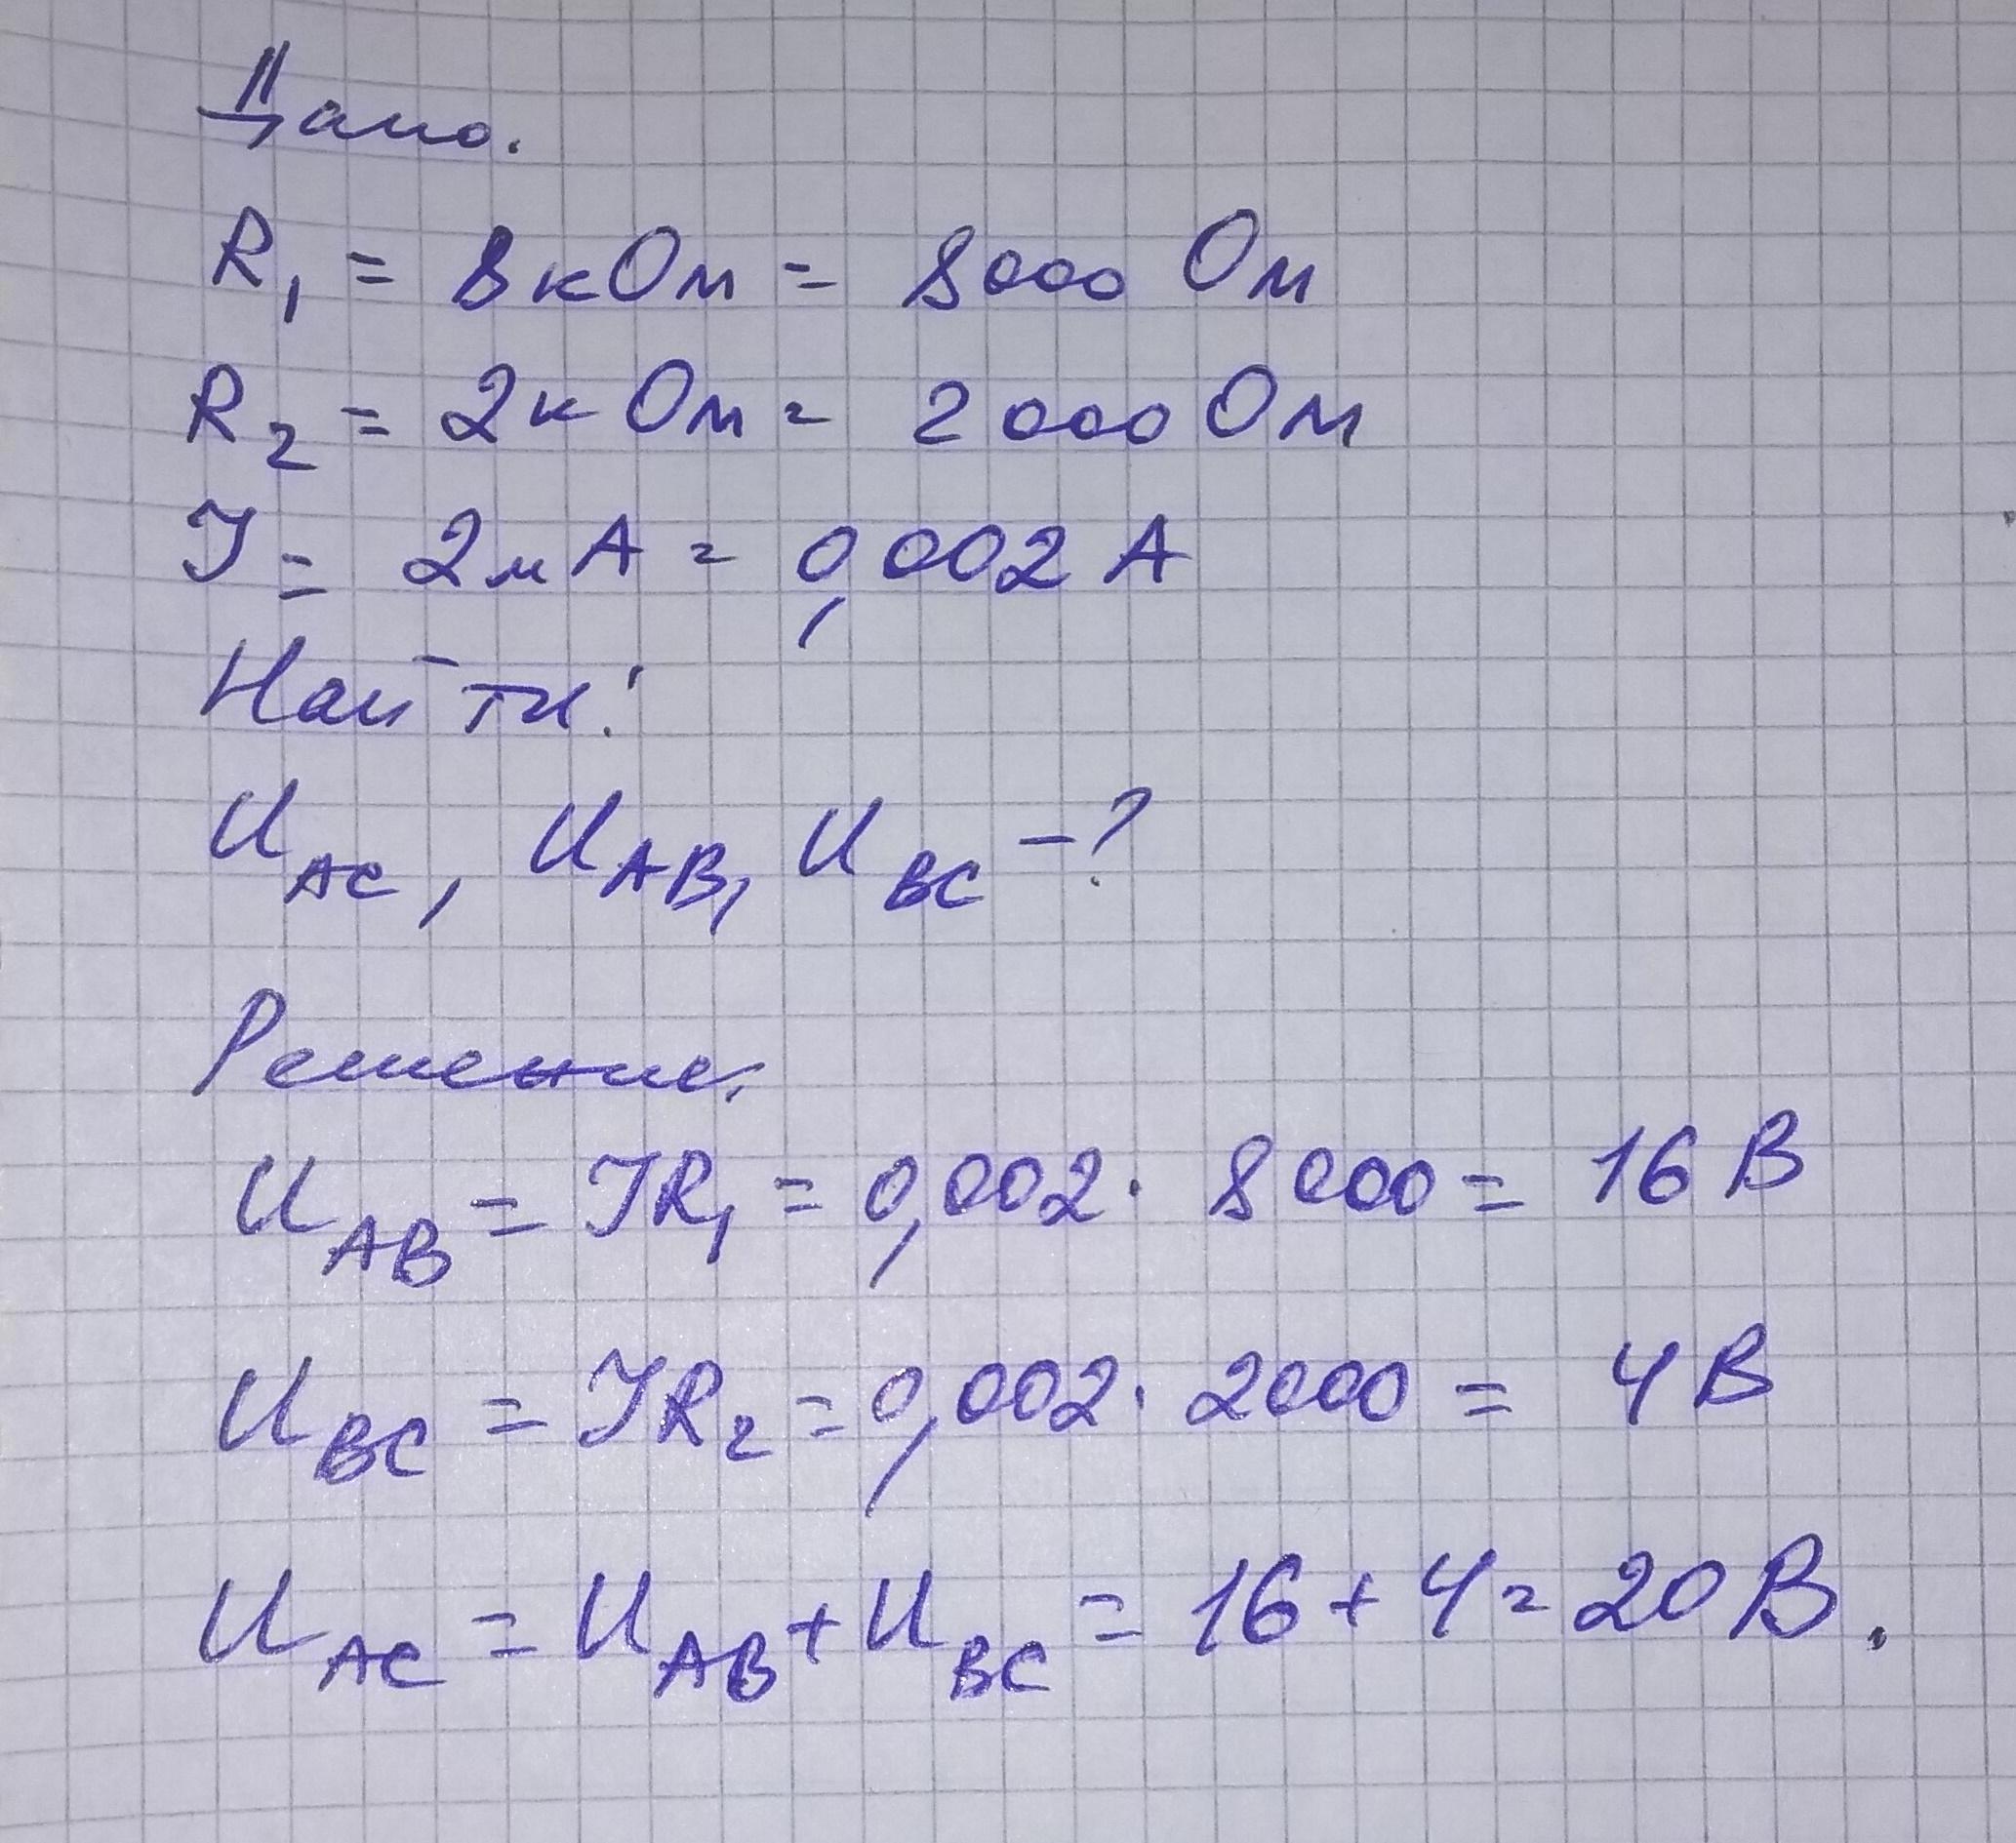 Дано.
R₁ = 8 кОм = 8000 Ом
R₂ = 2 к Ом = 2000 Ом
I = 2 мА = 0,002 А
Найти:
U_AC, U_AB, U_BC - ?
Решение.
U_AB = IR₁ = 0,002 · 8000 = 16 В
U_BC = IR₂ = 0,002 · 2000 = 4 В
U_AC = U_AB + U_BC = 16 + 4 = 20 В.